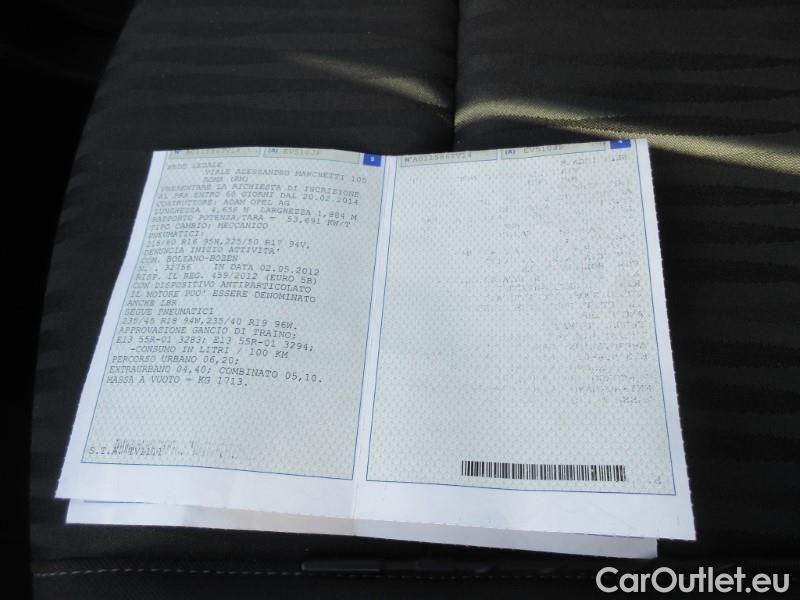 N°A011586TV14 (A) EV510JF 3
PRSO LEGALE
VIALE ALESSANDRO MARCHETTI 105
ROMA (RM)
PRESENTARE LA RICHIESTA DI ISCRIZIONE
AL PRA ENTRO 60 GIORNI DAL 20.02.2014
COSTRUTTORE: ADAM OPEL AG
LUNGHEZZA 4,658 M LARGHEZZA 1,884 M
RAPPORTO POTENZA/TARA = 53,691 KW/T
TIPO CAMBIO: MECCANICO
PNEUMATICI:
215/60 R16 95H,225/50 R17 94V,
DENUNCIA INIZIO ATTIVITA'
COM. BOLZANO-BOZEN
N. . 32756 IN DATA 02.05.2012
RISP. IL REG. 459/2012 (EURO 5B)
CON DISPOSITIVO ANTIPARTICOLATO
IL MOTORE PUO' ESSERE DENOMINATO
ANCHE LBR
SEGUE PNEUMATICI
235/45 R18 94W,235/40 R19 96W.
APPROVAZIONE GANCIO DI TRAINO:
E13 55R-01 3283; E13 55R-01 3294;
-CONSUMO IN LITRI / 100 KM
PERCORSO URBANO 06,20;
EXTRAURBANO 04,40; COMBINATO 05,10.
MASSA A VUOTO = KG 1713.
S.T.A. TV1101
N°A011586TV14 (A) EV510JF 4
CarOutlet.eu